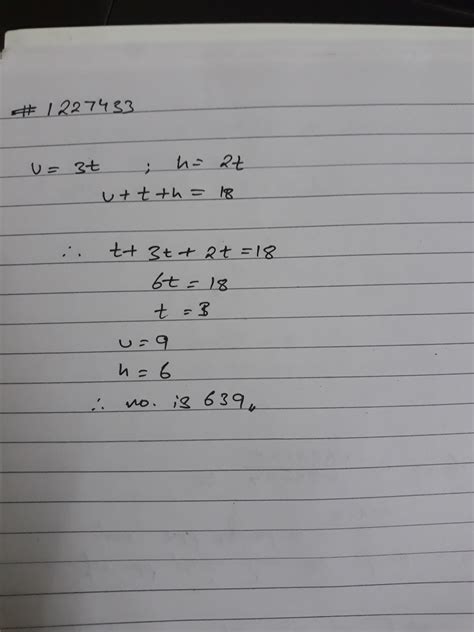 # 1227433
u = 3t ; h = 2t
u + t + h = 18
∴ t + 3t + 2t = 18
6t = 18
t = 3
u = 9
h = 6
∴ no. is 639,,